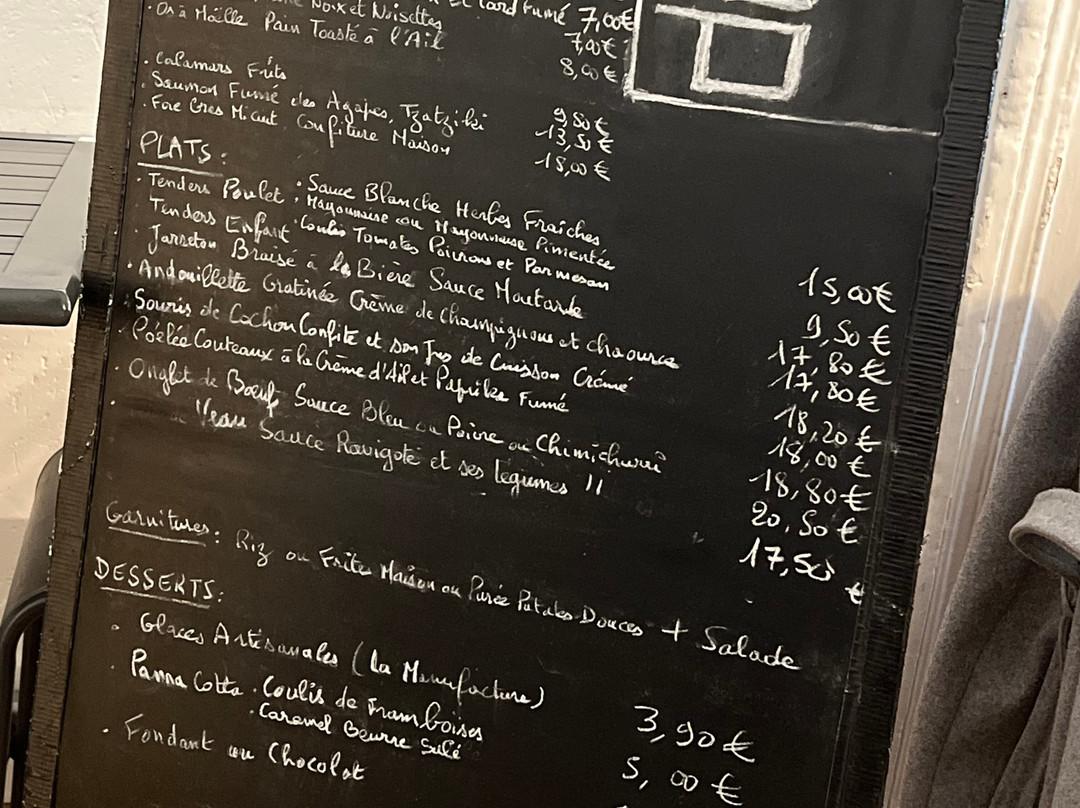 Noix et Noisettes
et Lard Fumé 7,00€
• Os à Moëlle Pain Toasté à l'Ail 7,00€
8,00€
• Calamars Frits
• Saumon Fumé des Agapes, Tzatziki 9,80€
• Foie Gras Mi cuit, Confiture Maison 13,50€
18,00€
PLATS :
• Tenders Poulet : Sauce Blanche Herbes Fraîches
Mayonnaise ou Mayonnaise Pimentée
Tenders Enfant Coulis Tomates Poivrons et Parmesan 15,00€
• Jarreton Braisé à la Bière Sauce Moutarde 9,50€
• Andouillette Gratinée Crème de Champignons et Chaource 17,80€
• Souris de Cochon Confite et son Jus de Cuisson Crémé 17,80€
• Poêlée Couteaux à la Crème d'Ail et Paprika Fumé 18,20€
• Onglet de Bœuf Sauce Bleu ou Poivre ou Chimichurri 18,00€
18,80€
• Veau Sauce Ravigote et ses légumes !! 20,50€
17,50€
Garnitures : Riz ou Frites Maison ou Purée Patates Douces + Salade
DESSERTS :
• Glaces Artisanales (La Manufacture)
• Panna Cotta • Coulis de Framboises 3,90€
• Caramel Beurre Salé 5,00€
• Fondant au Chocolat